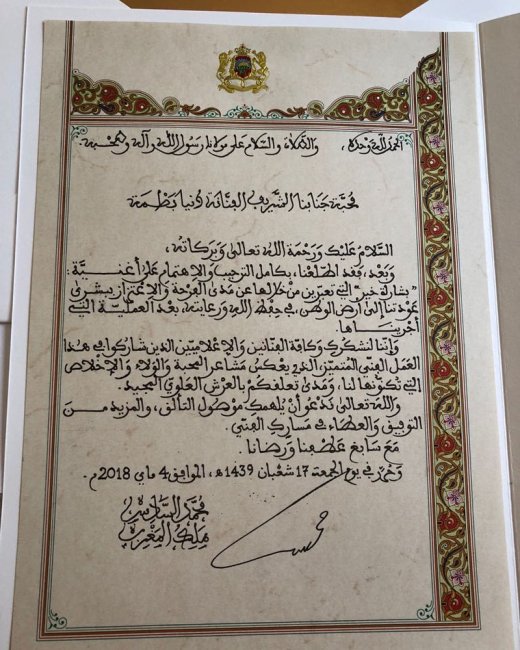 الحمد لله وحده، والصلاة والسلام على مولانا رسول الله وآله وصحبه.
محبة جنابنا الشريف الفنانة دنيا بطمة
السلام عليك ورحمة الله تعالى وبركاته،
وبعد، فقد اطلعنا، بكامل الترحيب والاهتمام على أغنية:
"بشارة خير" التي تعبرين من خلالها عن مدى الفرحة والاعتزاز ببشرى
عودتنا إلى أرض الوطن، في حفظ الله ورعايته، بعد العملية التي
أجريناها.
وإننا لنشكرك وكافة الفنانين والإعلاميين الذين شاركوا في هذا
العمل الفني المتميز، الذي يعكس مشاعر المحبة والولاء والإخلاص
التي تكنونها لنا، ومدى تعلقكم بالعرش العلوي المجيد.
والله تعالى ندعو أن يلهمك موصول التألق، والمزيد من
التوفيق والعطاء في مسارك الفني.
مع سابغ عطفنا ورضانا.
وحرر في يوم الجمعة 17 شعبان 1439 هـ، الموافق 4 ماي 2018 م.
محمد السادس
ملك المغرب